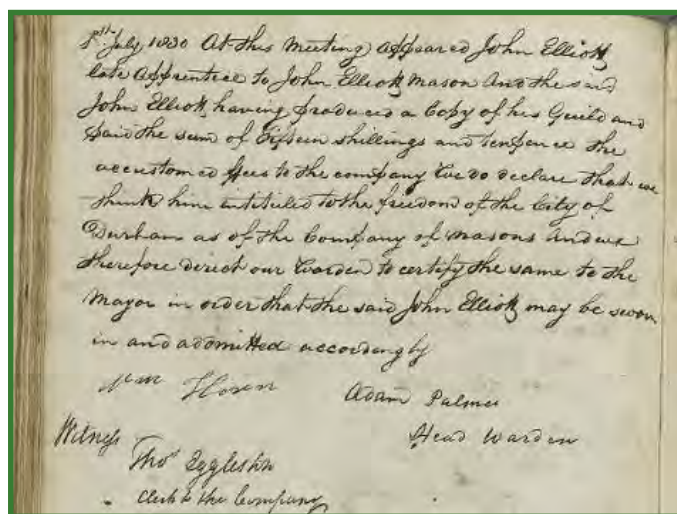 5th July 1830 At this Meeting Appeared John Elliott
late Apprentice to John Elliott Mason And the said
John Elliott having produced a Copy of his Guild and
paid the sum of Fifteen shillings and tenpence the
accustomed ffees to the company We do declare that we
think him intitled to the freedom of the City of
Durham as of the Company of Masons And we
therefore direct our Warden to certify the same to the
Mayor in order that the said John Elliott may be sworn
in and admitted accordingly
Wm
Adam Palmer
Head Warden
Witness
Thos Eggleston
Clerk to the Company